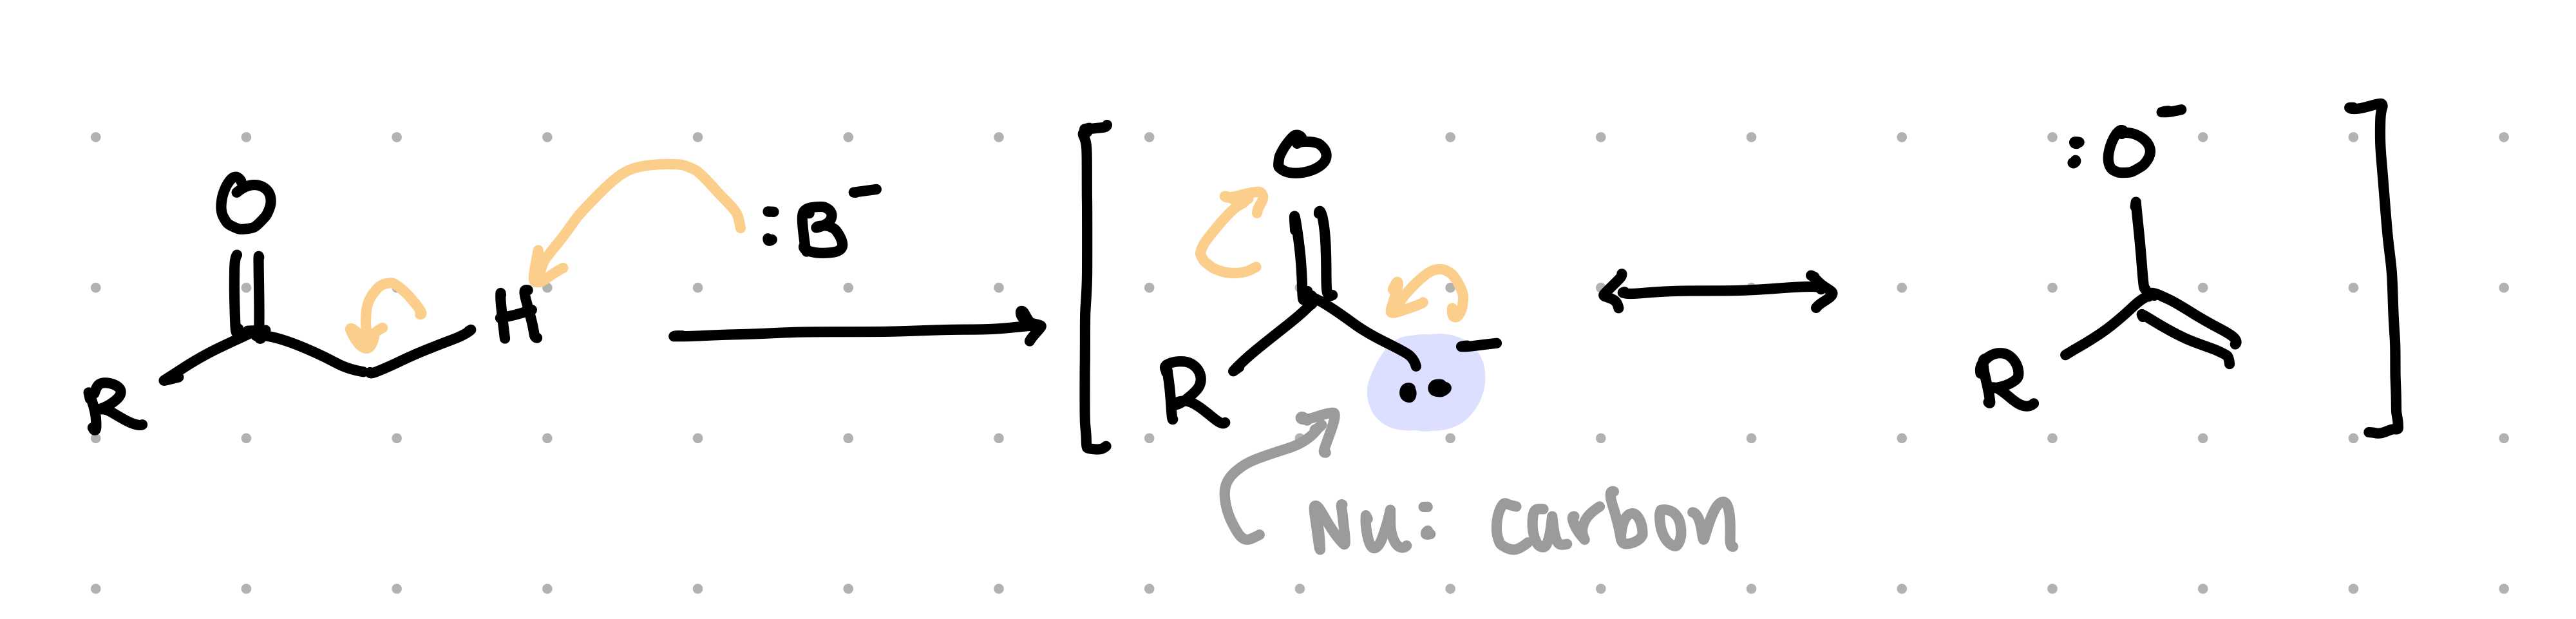 O
H
:B⁻
R
O
R
:O⁻
R
Nu: carbon